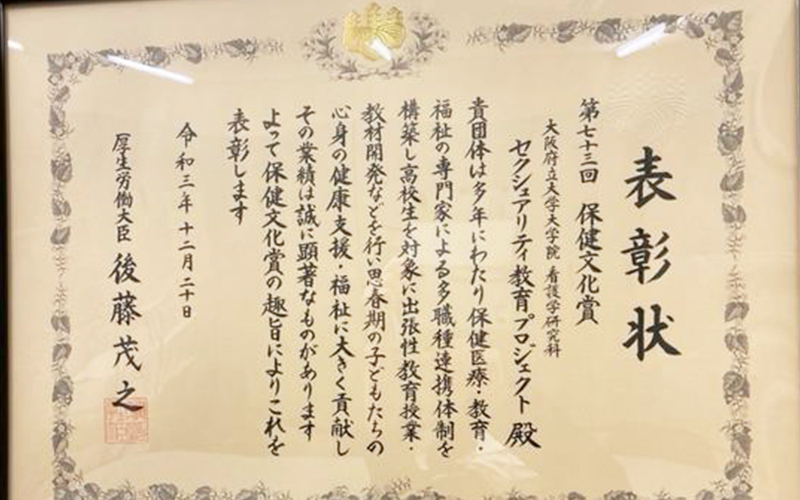 表彰状
第七十三回 保健文化賞
大阪府立大学大学院 看護学研究科
セクシュアリティ教育プロジェクト 殿
貴団体は多年にわたり保健医療・教育・
福祉の専門家による多職種連携体制を
構築し高校生を対象に出張性教育授業・
教材開発などを行い思春期の子どもたちの
心身の健康支援・福祉に大きく貢献し
その業績は誠に顕著なものがあります
よって保健文化賞の趣旨によりこれを
表彰します
令和三年十二月二十日
厚生労働大臣 後藤茂之